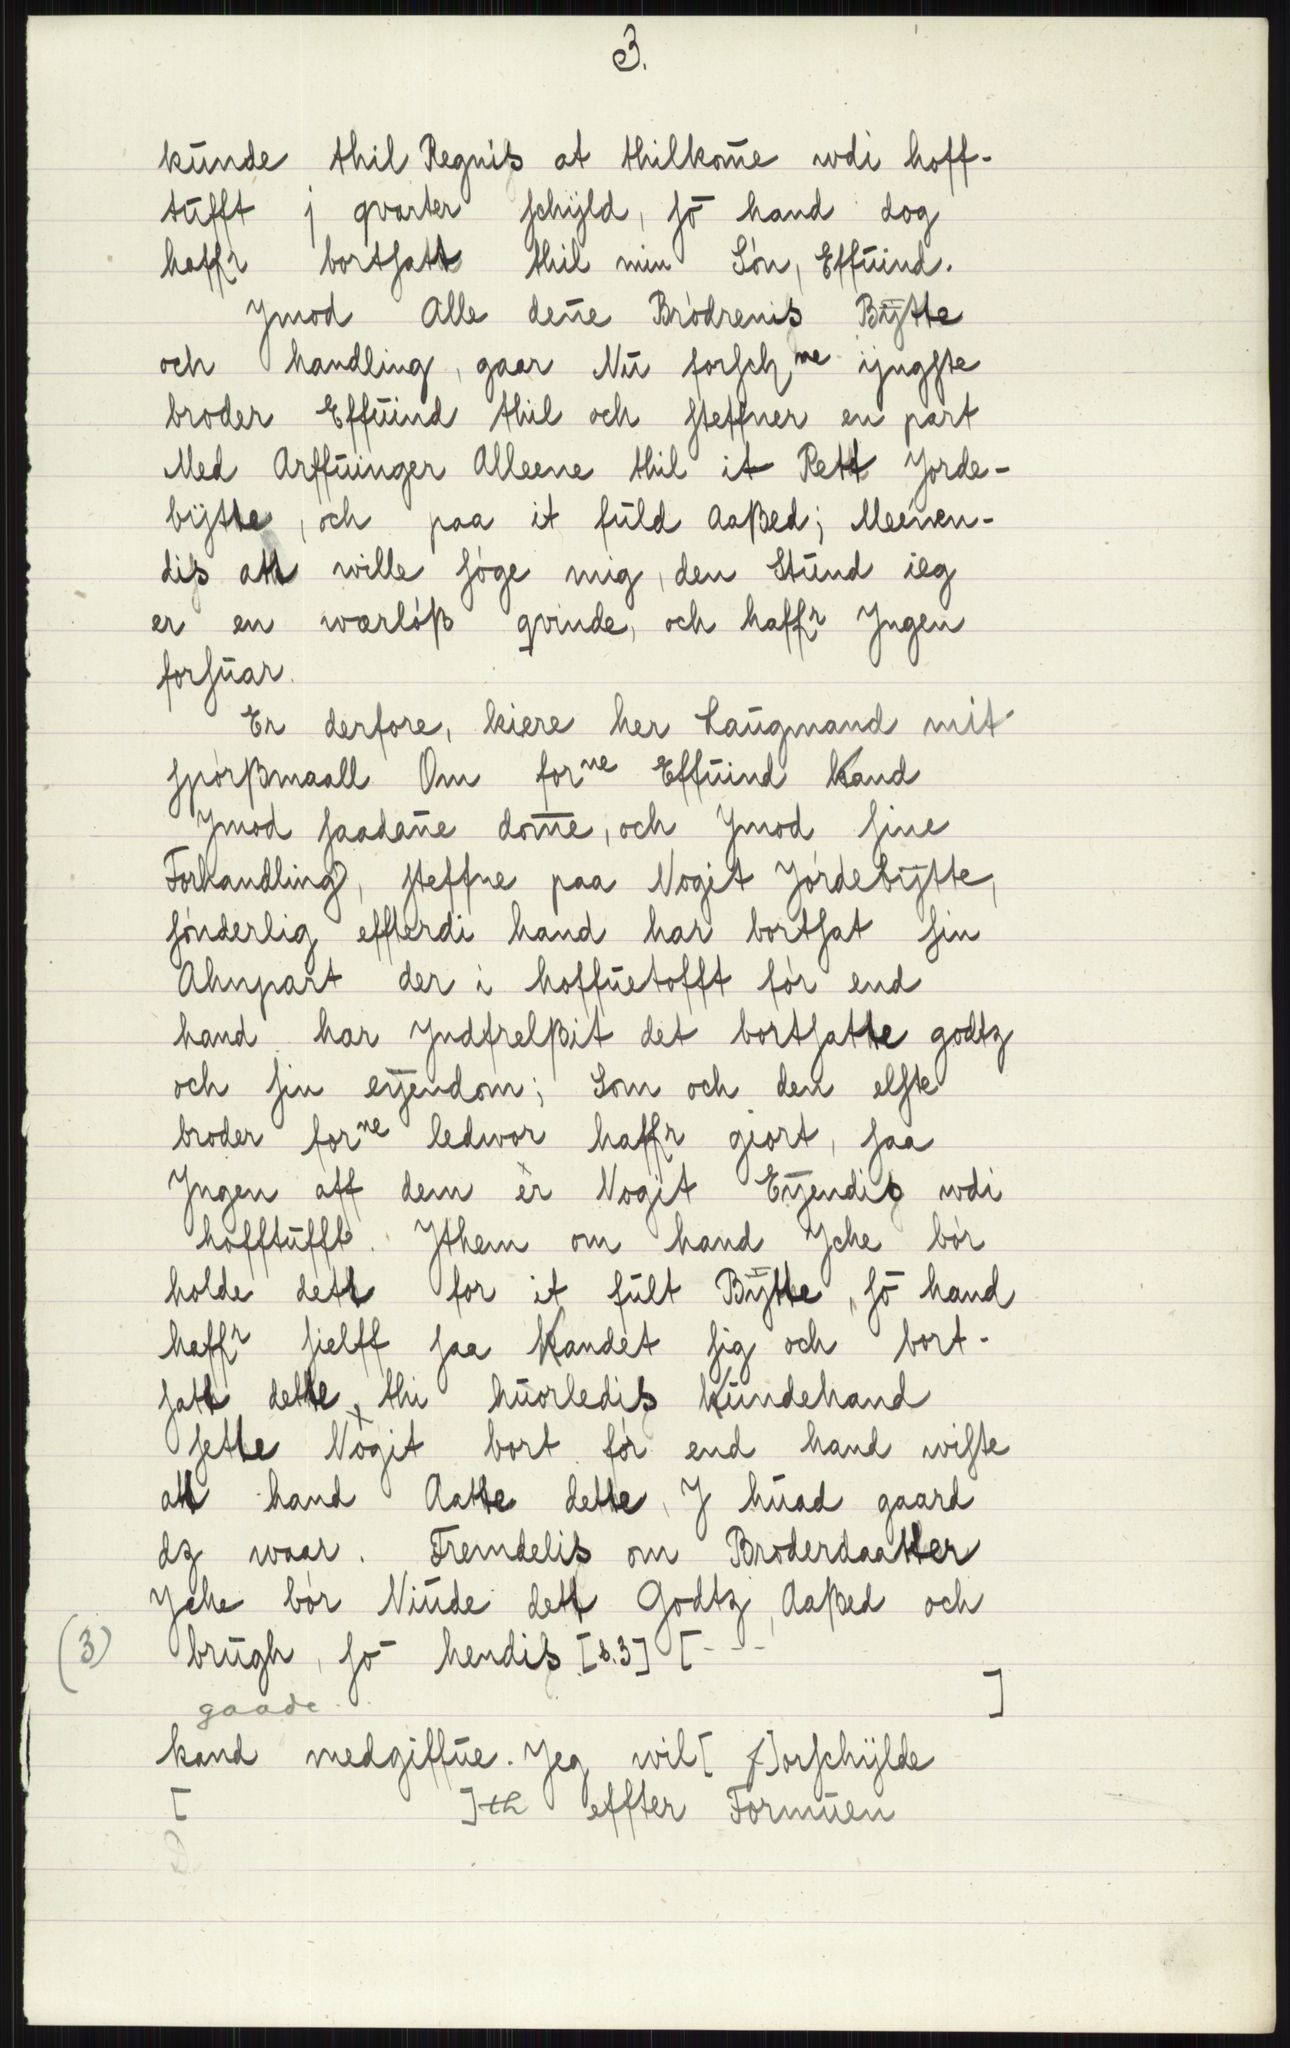 3.
kunde thil Regnis at thilkom̄e wdi hoff-
tufft j qvarter schyld, so̅ hand dog
haffr bortsatt thil min Són, Effuind.
Ymod Alle den̄e Bródrenis Bytte
och handling, gaar Nu forsch ne ijngste
broder Effuind thil och steffner en part
Med Arffuinger Alleene thil it Rett Jorde-
bytte, och paa it fuld Aaßed; Meenen-
dis att wille sóge mig, den Stund ieg
er en wærlóß qvinde, och haffr Yngen
forsuar.
Er derfore, kiere her Laugmand mit
spórßmaall Om forne Effuind kand
Ymod saadan̄e dom̄e, och Ymod sine
Forhandling, steffne paa Nogit Jórdebytte,
sónderlig effterdi hand har bortsat sin
Ahnpart der i hoffuetofft fór end
hand har Yndfrelßit det bortsatte godtz
och sin eyendom; Som och den elste
broder forne ledwor haffr giort, saa
Yngen aff dem er Nogit Eyendis wdi
hofftufft. Ythem om hand Yche bór
holde dett for it fult Bytte, so̅ hand
haffr sielff saa kandet sig och bort-
satt dette, thi huorledis kundehand
sette Nogit bort fór end hand wiste
att hand Aatte dette, J huad gaard
dz waar. Fremdelis om Broderdaatter
Yche bór Niude dett Godtz, Aaßed och
(3) brugh, so̅ hendis [s.3] [- - -
]
gaade
kand medgiffue. Jeg wil[ f]orschylde
[ ]th effter Formuen